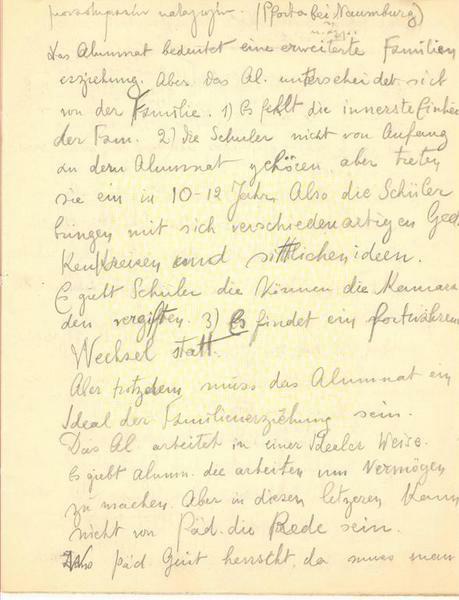 (Pforta bei Naumburg)
Das Alumnat bedeutet eine erweiterte Familien
erziehung. Aber das Al. unterscheidet sich
von der Familie. 1) Es fehlt die innerste Einhei
der Fam. 2) die Schüler nicht von Anfang
an dem Alumnat gehören, aber treten
sie ein in 10-12 Jahr. Also die Schüler
bringen mit sich verschiedenartigen Ged
kenkreisen und sittlichen ideen.
Es giebt Schüler die können die Kamara
den vergiften. 3) Es findet ein fortwähren
Wechsel statt.
Aber trotzdem muss das Alumnat ein
Ideal der Familienerziehung sein.
Das Al arbeitet in einer Idealer Weise.
Es giebt alumn. die arbeiten um Vermögen
zu machen. Aber in diesen letzeren kann
nicht von Päd. die Rede sein.
Wo päd. Geist herrscht, da muss man